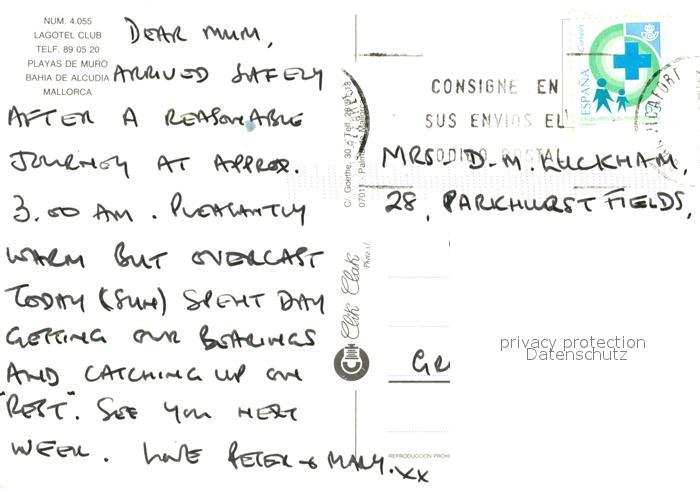 NUM. 4.055
LAGOTEL CLUB
TELF. 89 05 20
PLAYAS DE MURO
BAHIA DE ALCUDIA
MALLORCA
DEAR MUM,
ARRIVED SAFELY
AFTER A REASONABLE
JOURNEY AT APPROX.
3.00 AM. PLEASANTLY
WARM BUT OVERCAST
TODAY (SUN) SPENT DAY
GETTING OUR BEARINGS
AND CATCHING UP ON
"REST". SEE YOU NEXT
WEEK. LOVE PETER & MARY. XX
Clik Clak
CONSIGNE EN
SUS ENVIOS EL
CODIGO POSTAL
Correos
ESPAÑA
MRS. D. M. LUCKHAM,
28, PARKHURST FIELDS,
privacy protection
Datenschutz
REPRODUCCION PROHI